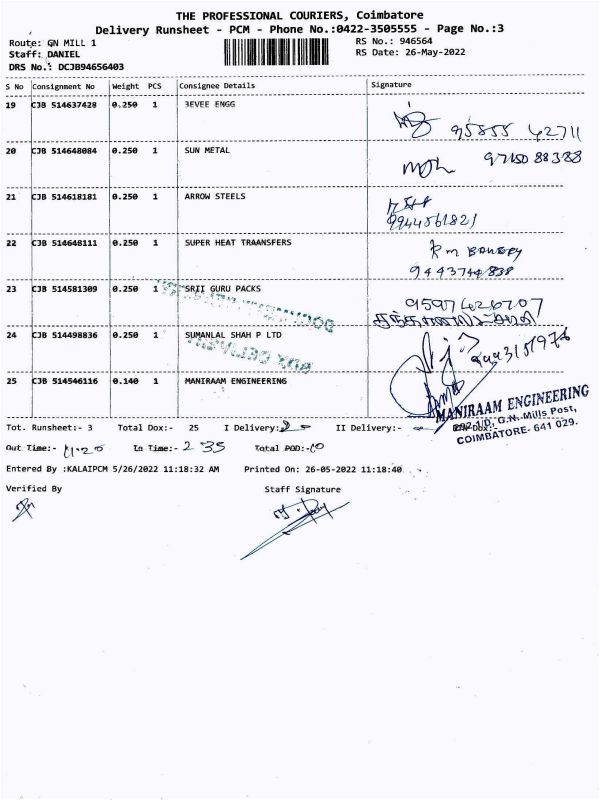 THE PROFESSIONAL COURIERS, Coimbatore
Delivery Runsheet - PCM - Phone No.:0422-3505555 - Page No.:3
Route: GN MILL 1
RS No.: 946564
Staff: DANIEL
RS Date: 26-May-2022
DRS No.: DCJB94656403
S No Consignment No Weight PCS Consignee Details Signature
19 CJB 514637428 0.250 1 3EVEE ENGG
95855 42711
20 CJB 514648084 0.250 1 SUN METAL
97150 88388
21 CJB 514618181 0.250 1 ARROW STEELS
9944561821
22 CJB 514648111 0.250 1 SUPER HEAT TRAANSFERS
9443744838
23 CJB 514581309 0.250 1 SRII GURU PACKS
9597426707
24 CJB 514498836 0.250 1 SUMANLAL SHAH P LTD
25 CJB 514546116 0.140 1 MANIRAAM ENGINEERING
MANIRAAM ENGINEERING
292-1/D, G.N. Mills Post,
COIMBATORE- 641 029.
Tot. Runsheet:- 3 Total Dox:- 25 I Delivery:- II Delivery:-
Out Time:- 11-20 In Time:- 2 35 Total POD:-
Entered By :KALAIPCM 5/26/2022 11:18:32 AM Printed On: 26-05-2022 11:18:40
Verified By Staff Signature